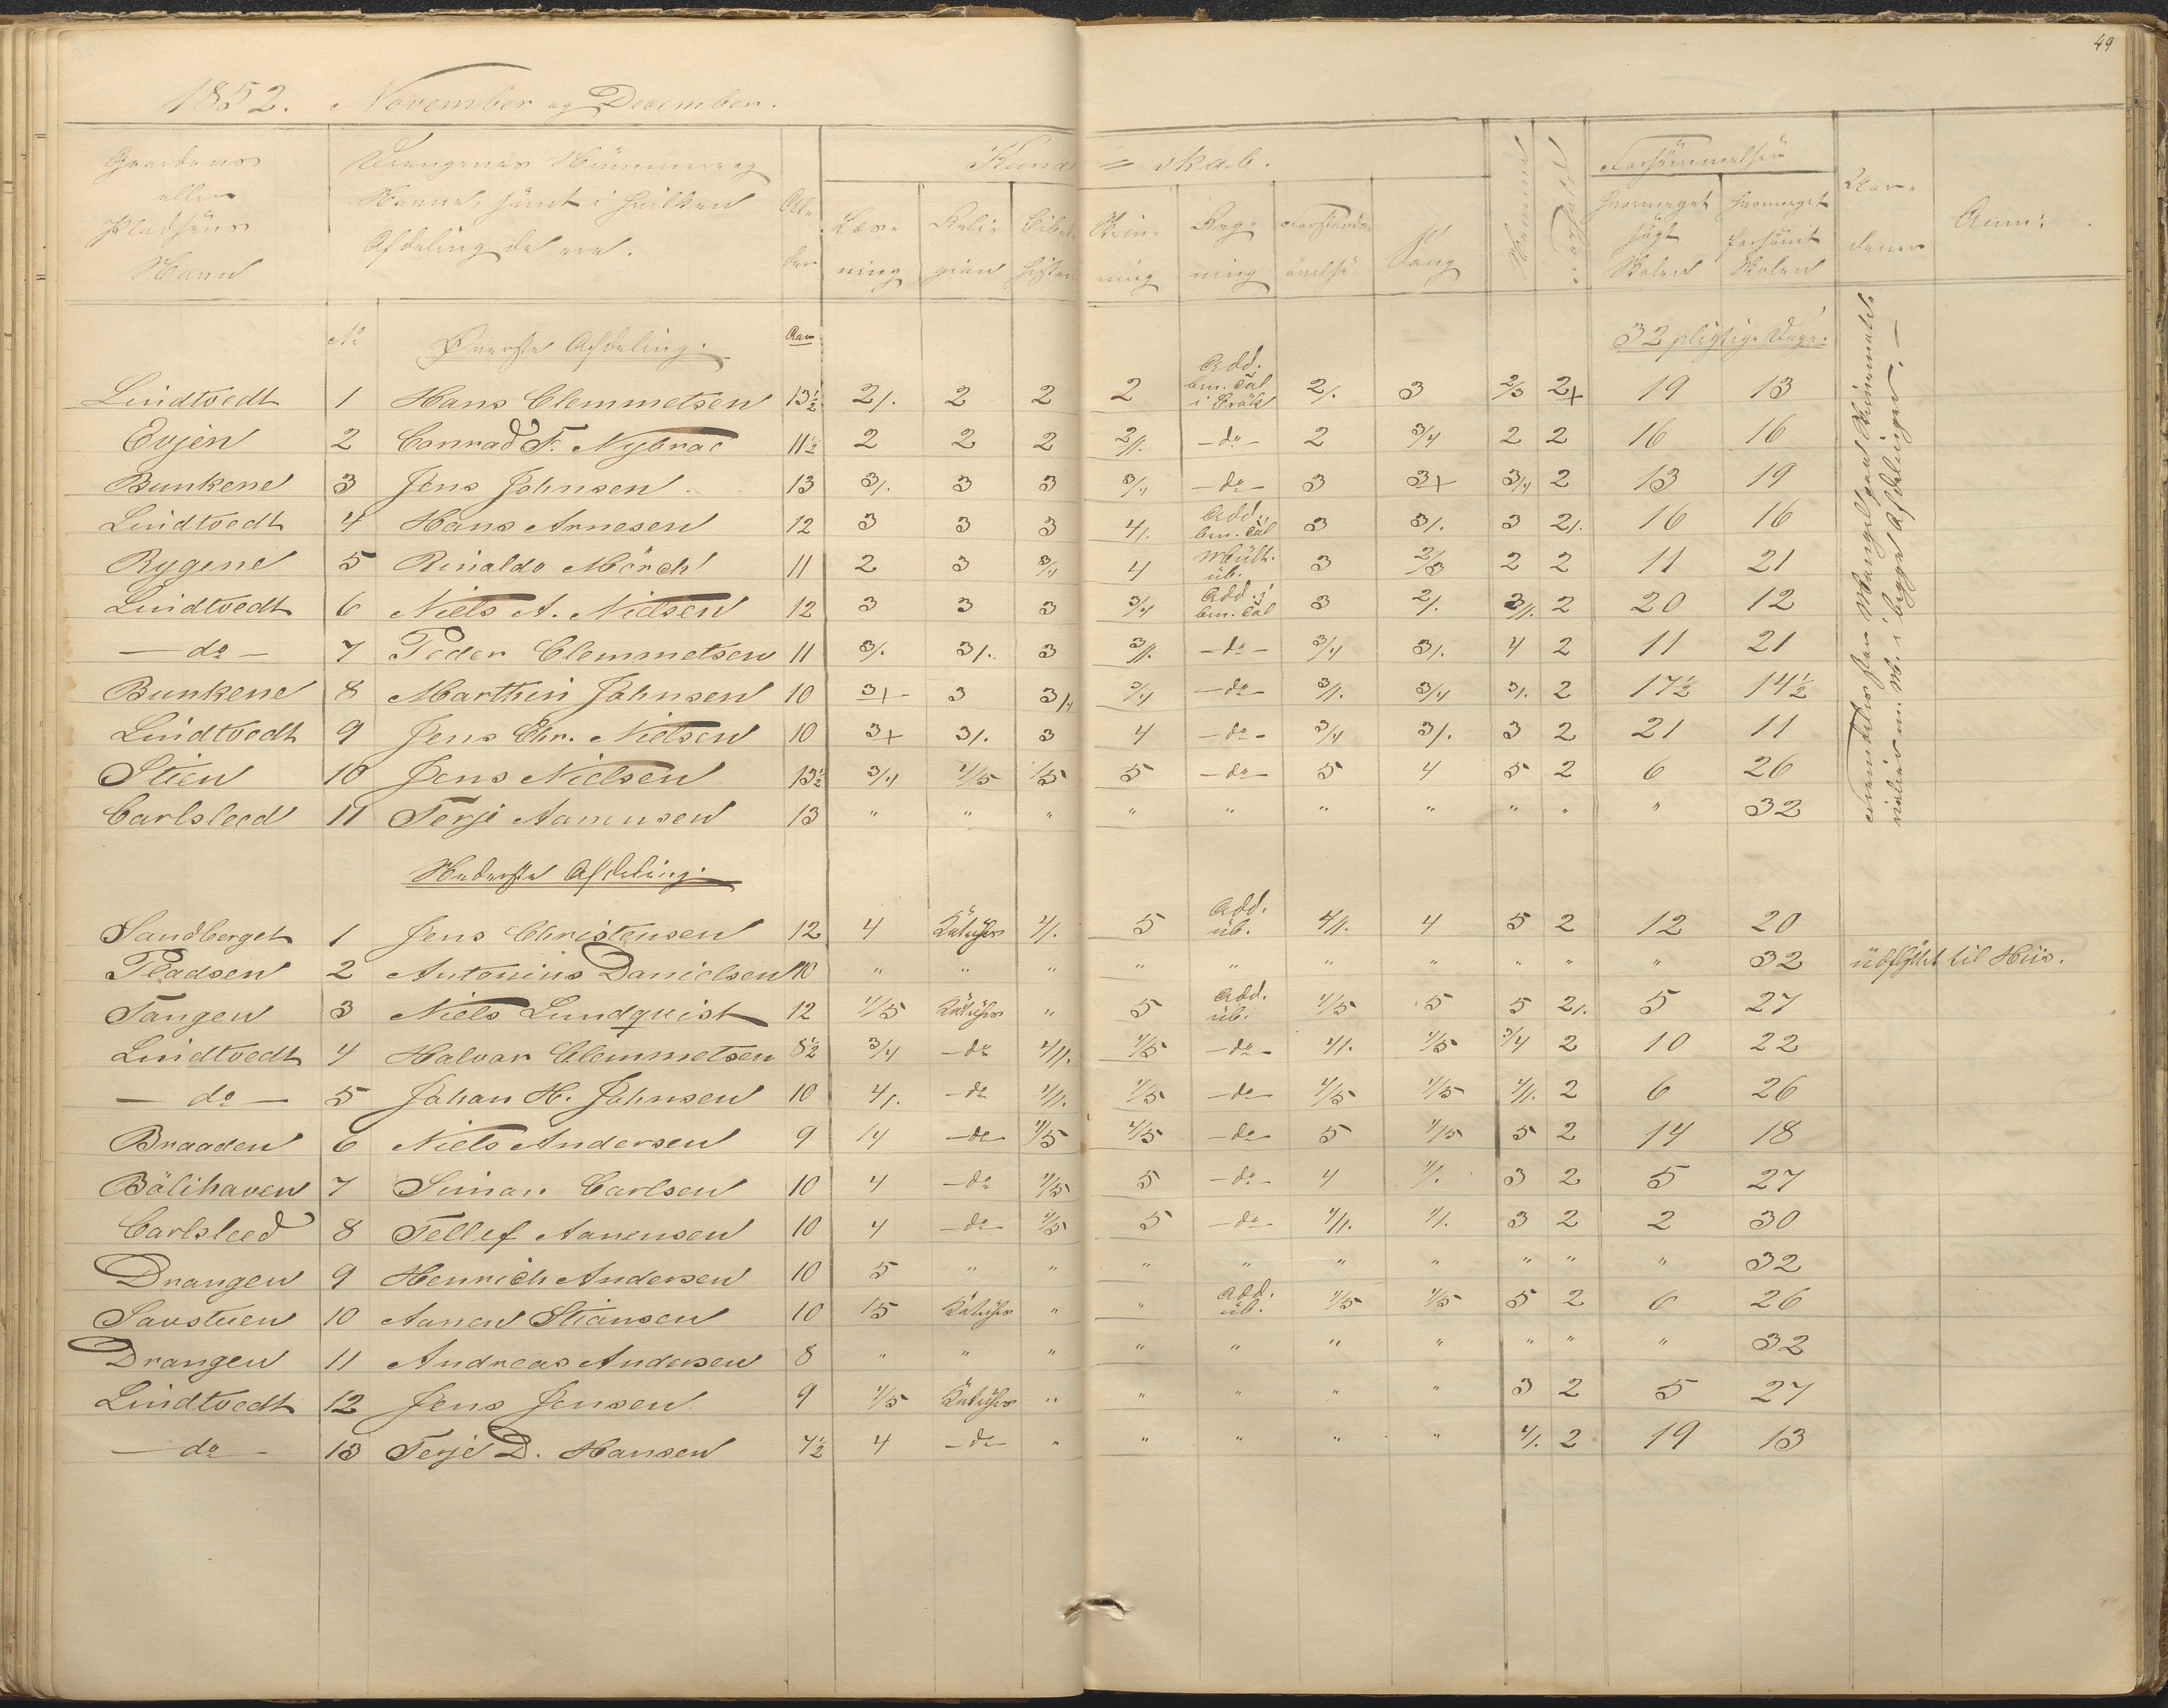 49
1852. November og December.
Gaardens eller Pladsens Navn
Drengenes Nummere og Navne, samt i hvilken Afdeling de ere.
Al- der
Kund = skab.
Læs- ning
Reli- gion
Bibel- histori
Skriv- ning
Reg- ning
Forstands- övelse
Sang
Forhold
Forsömmelser
hvormeget sögt Skolen
hvormeget forsömt Skolen
Anm:
No Överste Afdeling. Aar 32 pligtige Dage.
Lindtvedt 1 Hans Clemmetsen 13½ 2/. 2 2 2 Add. bn. Tal i Brök 2/. 3 2/3 2+ 19 13
Evjen 2 Conrad F. Nybroe 11½ 2 2 2 2//. -do- 2 3/4 2 2 16 16
Bunkene 3 Jens Johnsen 13 3/. 3 3 3/4 -do- 3 3+ 3/4 2 13 19
Lindtvedt 4 Hans Arnesen 12 3 3 3 4/. Add. bn. Tal 3 3/. 3 2/. 16 16
Rygene 5 Rinaldo Mörch 11 2 3 3/4 4 Mult. üb. 3 2/3 2 2 11 21
Lindtvedt 6 Niels A. Nielsen 12 3 3 3 3/4 Add. i bn. Tal 3 2/. 3//. 2 20 12
- do - 7 Peder Clemmetsen 11 3/. 3/. 3 3//. -do- 3/4 3/. 4 2 11 21
Bunkene 8 Marthin Johnsen 10 3+ 3 3/4 3/4 -do- 3//. 3/4 3/. 2 17½ 14½
Lindtvedt 9 Jens Chr. Nielsen 10 3+ 3/. 3 4 -do- 3/4 3/. 3 2 21 11
Stien 10 Jens Nielsen 13½ 3/4 4/5 4/5 5 -do- 5 4 5 2 6 26
Carlsleed 11 Terje Aanensen 13 " " " " " " " " " " 32
Nederste Afdeling.
Sandberget 1 Jens Christensen 12 4 4/. 5 Add. üb. 4//. 4 5 2 12 20
Pladsen 2 Antonius Danielsen 10 " " " " " " " " " " 32 üdflyttet til Hiis.
Tangen 3 Niels Lundquist 12 4/5 " 5 Add. üb. 4/5 5 5 2/. 5 27
Lindtvedt 4 Halvor Clemmetsen 8½ 3/4 -do 4//. 4/5 -do- 4/. 4/5 3/4 2 10 22
- do - 5 Johan H. Johnsen 10 4/. -do 4//. 4/5 -do- 4/5 4/5 4//. 2 6 26
Braaden 6 Niels Andersen 9 /4 -do 4/5 4/5 -do- 5 4/5 5 2 14 18
Bölihaven 7 Simon Carlsen 10 4 -do 4/5 5 -do- 4 4/. 3 2 5 27
Carlsleed 8 Tellef Aanensen 10 4 -do- 4/5 5 -do- 4//. 4/. 3 2 2 30
Drangen 9 Henrich Andersen 10 5 " " " " " " " " " 32
Savstuen 10 Aanen Stiansen 10 /5 " " Add. üb. 4/5 4/5 5 2 6 26
Drangen 11 Andreas Andersen 8 " " " " " " " " " " 32
Lindtvedt 12 Jens Jensen 9 4/5 " " " " " 3 2 5 27
- do - 13 Terje D. Hansen 7½ 4 -do- " " " " " 4/. 2 19 13